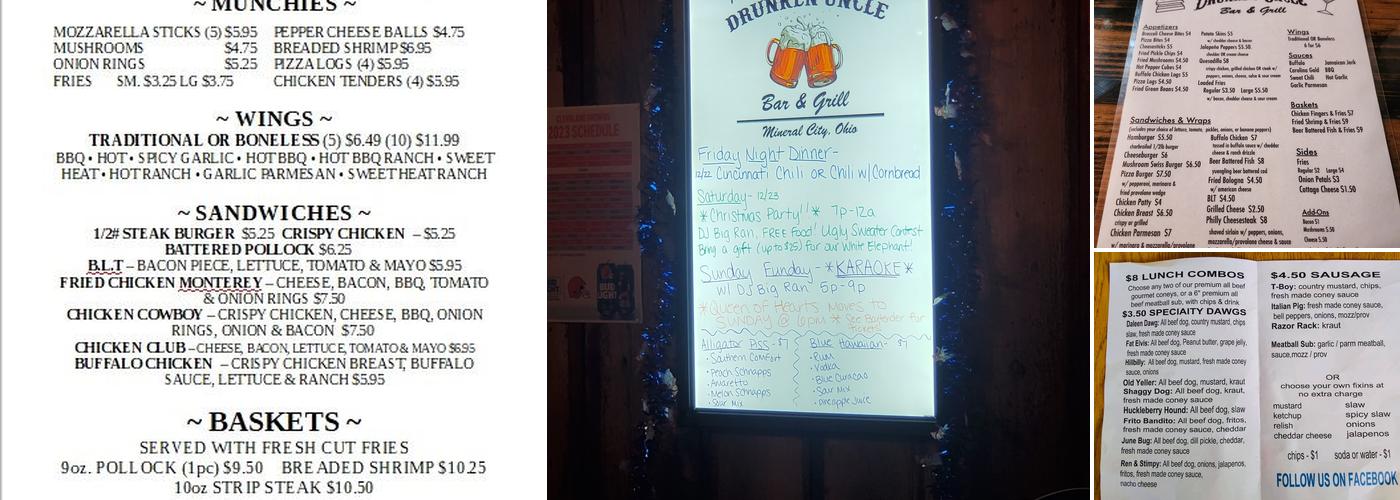 ~ MUNCHIES ~
MOZZARELLA STICKS (5) $5.95 PEPPER CHEESE BALLS $4.75
MUSHROOMS $4.75 BREADED SHRIMP $6.95
ONION RINGS $5.25 PIZZA LOGS (4) $5.95
FRIES SM. $3.25 LG $3.75 CHICKEN TENDERS (4) $5.95
~ WINGS ~
TRADITIONAL OR BONELESS (5) $6.49 (10) $11.99
BBQ • HOT • SPICY GARLIC • HOT BBQ • HOT BBQ RANCH • SWEET
HEAT • HOT RANCH • GARLIC PARMESAN • SWEET HEAT RANCH
~ SANDWICHES ~
1/2# STEAK BURGER $5.25 CRISPY CHICKEN – $5.25
BATTERED POLLOCK $6.25
B.L.T – BACON PIECE, LETTUCE, TOMATO & MAYO $5.95
FRIED CHICKEN MONTEREY – CHEESE, BACON, BBQ, TOMATO
& ONION RINGS $7.50
CHICKEN COWBOY – CRISPY CHICKEN, CHEESE, BBQ, ONION
RINGS, ONION & BACON $7.50
CHICKEN CLUB – CHEESE, BACON, LETTUCE, TOMATO & MAYO $6.95
BUFFALO CHICKEN – CRISPY CHICKEN BREAST, BUFFALO
SAUCE, LETTUCE & RANCH $5.95
~ BASKETS ~
SERVED WITH FRESH CUT FRIES
9oz. POLLOCK (1pc) $9.50 BREADED SHRIMP $10.25
10oz STRIP STEAK $10.50
2023 SCHEDULE
BUD
LIGHT
DRUNKEN UNCLE
Bar & Grill
Mineral City, Ohio
Friday Night Dinner-
12/22 Cincinnati Chili OR Chili w/ Cornbread
Saturday- 12/23
*Christmas Party!!* 7p-12a
DJ Big Ran, FREE Food! Ugly Sweater Contest
Bring a gift (up to $25) for our White Elephant!
Sunday Funday- *KARAOKE*
w/ DJ Big Ran 5p-9p
*Queen of Hearts moves to
SUNDAY @ 6pm * See Bartender for
tickets
Alligator Piss - $7
• Southern Comfort
• Peach Schnapps
• Amaretto
• Melon Schnapps
• Sour Mix
Blue Hawaiian- $7
• Rum
• Vodka
• Blue Curacao
• Sour Mix
• Pineapple Juice
Bar & Grill
Appetizers
Broccoli Cheese Bites $4
Pizza Bites $4
Cheesesticks $5
Fried Pickle Chips $4
Fried Mushrooms $4.50
Hot Pepper Cubes $4
Buffalo Chicken Logs $5
Pizza Logs $4.50
Fried Green Beans $4.50
Potato Skins $5
w/ cheddar cheese & bacon
Jalapeño Poppers $5.50
cheddar OR cream cheese
Quesadilla $8
crispy chicken, grilled chicken OR steak w/
peppers, onions, cheese, salsa & sour cream
Loaded Fries
Regular $3.50 Large $5.50
w/ bacon, cheddar cheese & sour cream
Wings
Traditional OR Boneless
6 for $6
Sauces
Buffalo Jamaican Jerk
Carolina Gold BBQ
Sweet Chili Hot Garlic
Garlic Parmesan
Baskets
Chicken Fingers & Fries $7
Fried Shrimp & Fries $9
Beer Battered Fish & Fries $9
Sandwiches & Wraps
(includes your choice of lettuce, tomato, pickles, onions, or banana peppers)
Hamburger $5.50
charbroiled 1/2lb burger
Cheeseburger $6
Mushroom Swiss Burger $6.50
Pizza Burger $7.50
w/ pepperoni, marinara &
fried provolone wedge
Chicken Patty $4
Chicken Breast $6.50
crispy or grilled
Chicken Parmesan $7
w/ marinara & mozzarella/provolone
Buffalo Chicken $7
tossed in buffalo sauce w/ cheddar
cheese & ranch drizzle
Beer Battered Fish $8
yuengling beer battered cod
Fried Bologna $4.50
w/ american cheese
BLT $4.50
Grilled Cheese $2.50
Philly Cheesesteak $8
shaved sirloin w/ peppers, onions,
mozzarella/provolone cheese & sauce
Sides
Fries
Regular $2 Large $4
Onion Petals $3
Cottage Cheese $1.50
Add-Ons
Bacon $1
Mushrooms $.50
Cheese $.50
$8 LUNCH COMBOS
Choose any two of our premium all beef
gourmet coneys, or a 6" premium all
beef meatball sub, with chips & drink
$3.50 SPECIALTY DAWGS
Daleen Dawg: All beef dog, country mustard, chips
slaw, fresh made coney sauce
Fat Elvis: All beef dog, Peanut butter, grape jelly,
fresh made coney sauce
Hillbilly: All beef dog, mustard, fresh made coney
sauce, onions
Old Yeller: All beef dog, mustard, kraut
Shaggy Dog: All beef dog, kraut,
fresh made coney sauce
Huckleberry Hound: All beef dog, slaw
Frito Bandito: All beef dog, fritos,
fresh made coney sauce, cheddar
June Bug: All beef dog, dill pickle, cheddar,
fresh made coney sauce
Ren & Stimpy: All beef dog, onions, jalapenos,
fritos, fresh made coney sauce,
nacho cheese
$4.50 SAUSAGE
T-Boy: country mustard, chips,
fresh made coney sauce
Italian Pig: fresh made coney sauce,
bell peppers, onions, mozz/prov
Razor Rack: kraut
Meatball Sub: garlic / parm meatball,
sauce,mozz / prov
OR
choose your own fixins at
no extra charge
mustard slaw
ketchup spicy slaw
relish onions
cheddar cheese jalapenos
chips - $1 soda or water - $1
FOLLOW US ON FACEBOOK